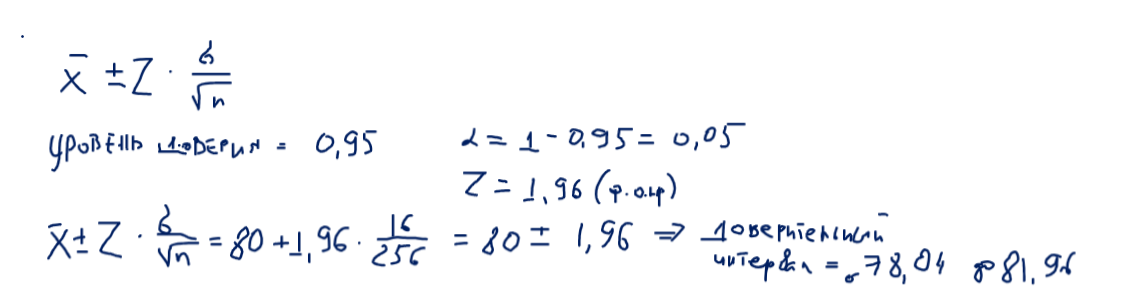 x̄ ± Z · σ/√n
уровень доверия = 0,95 α = 1 - 0,95 = 0,05
Z = 1,96
x̄ ± Z · σ/√n = 80 + 1,96 · 16/256 = 80 ± 1,96 ⇒ доверительный
интервал = 78,04 81,96